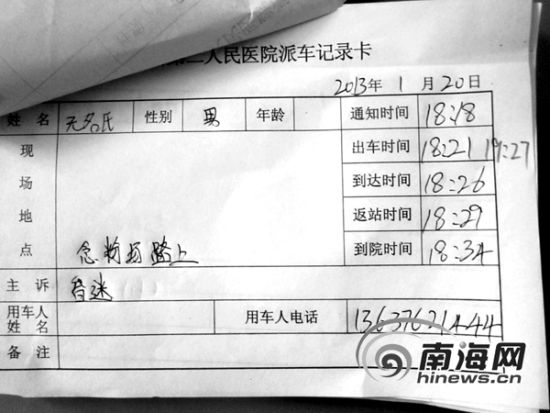 二人民医院派车记录卡
2013年 1月 20日
姓名 无名氏 性别 男 年龄 通知时间 18:18
现场地点 出车时间 18:21 19:27
到达时间 18:26
返站时间 18:29
路上 到院时间 18:34
主诉 昏迷
用车人姓名 用车人电话
备注
南海网
hinews.cn